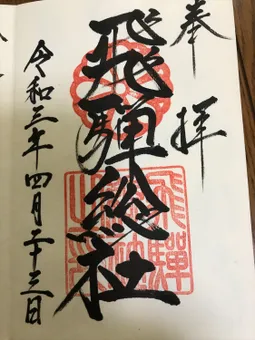 奉拝
飛騨総社
令和三年四月二十三日